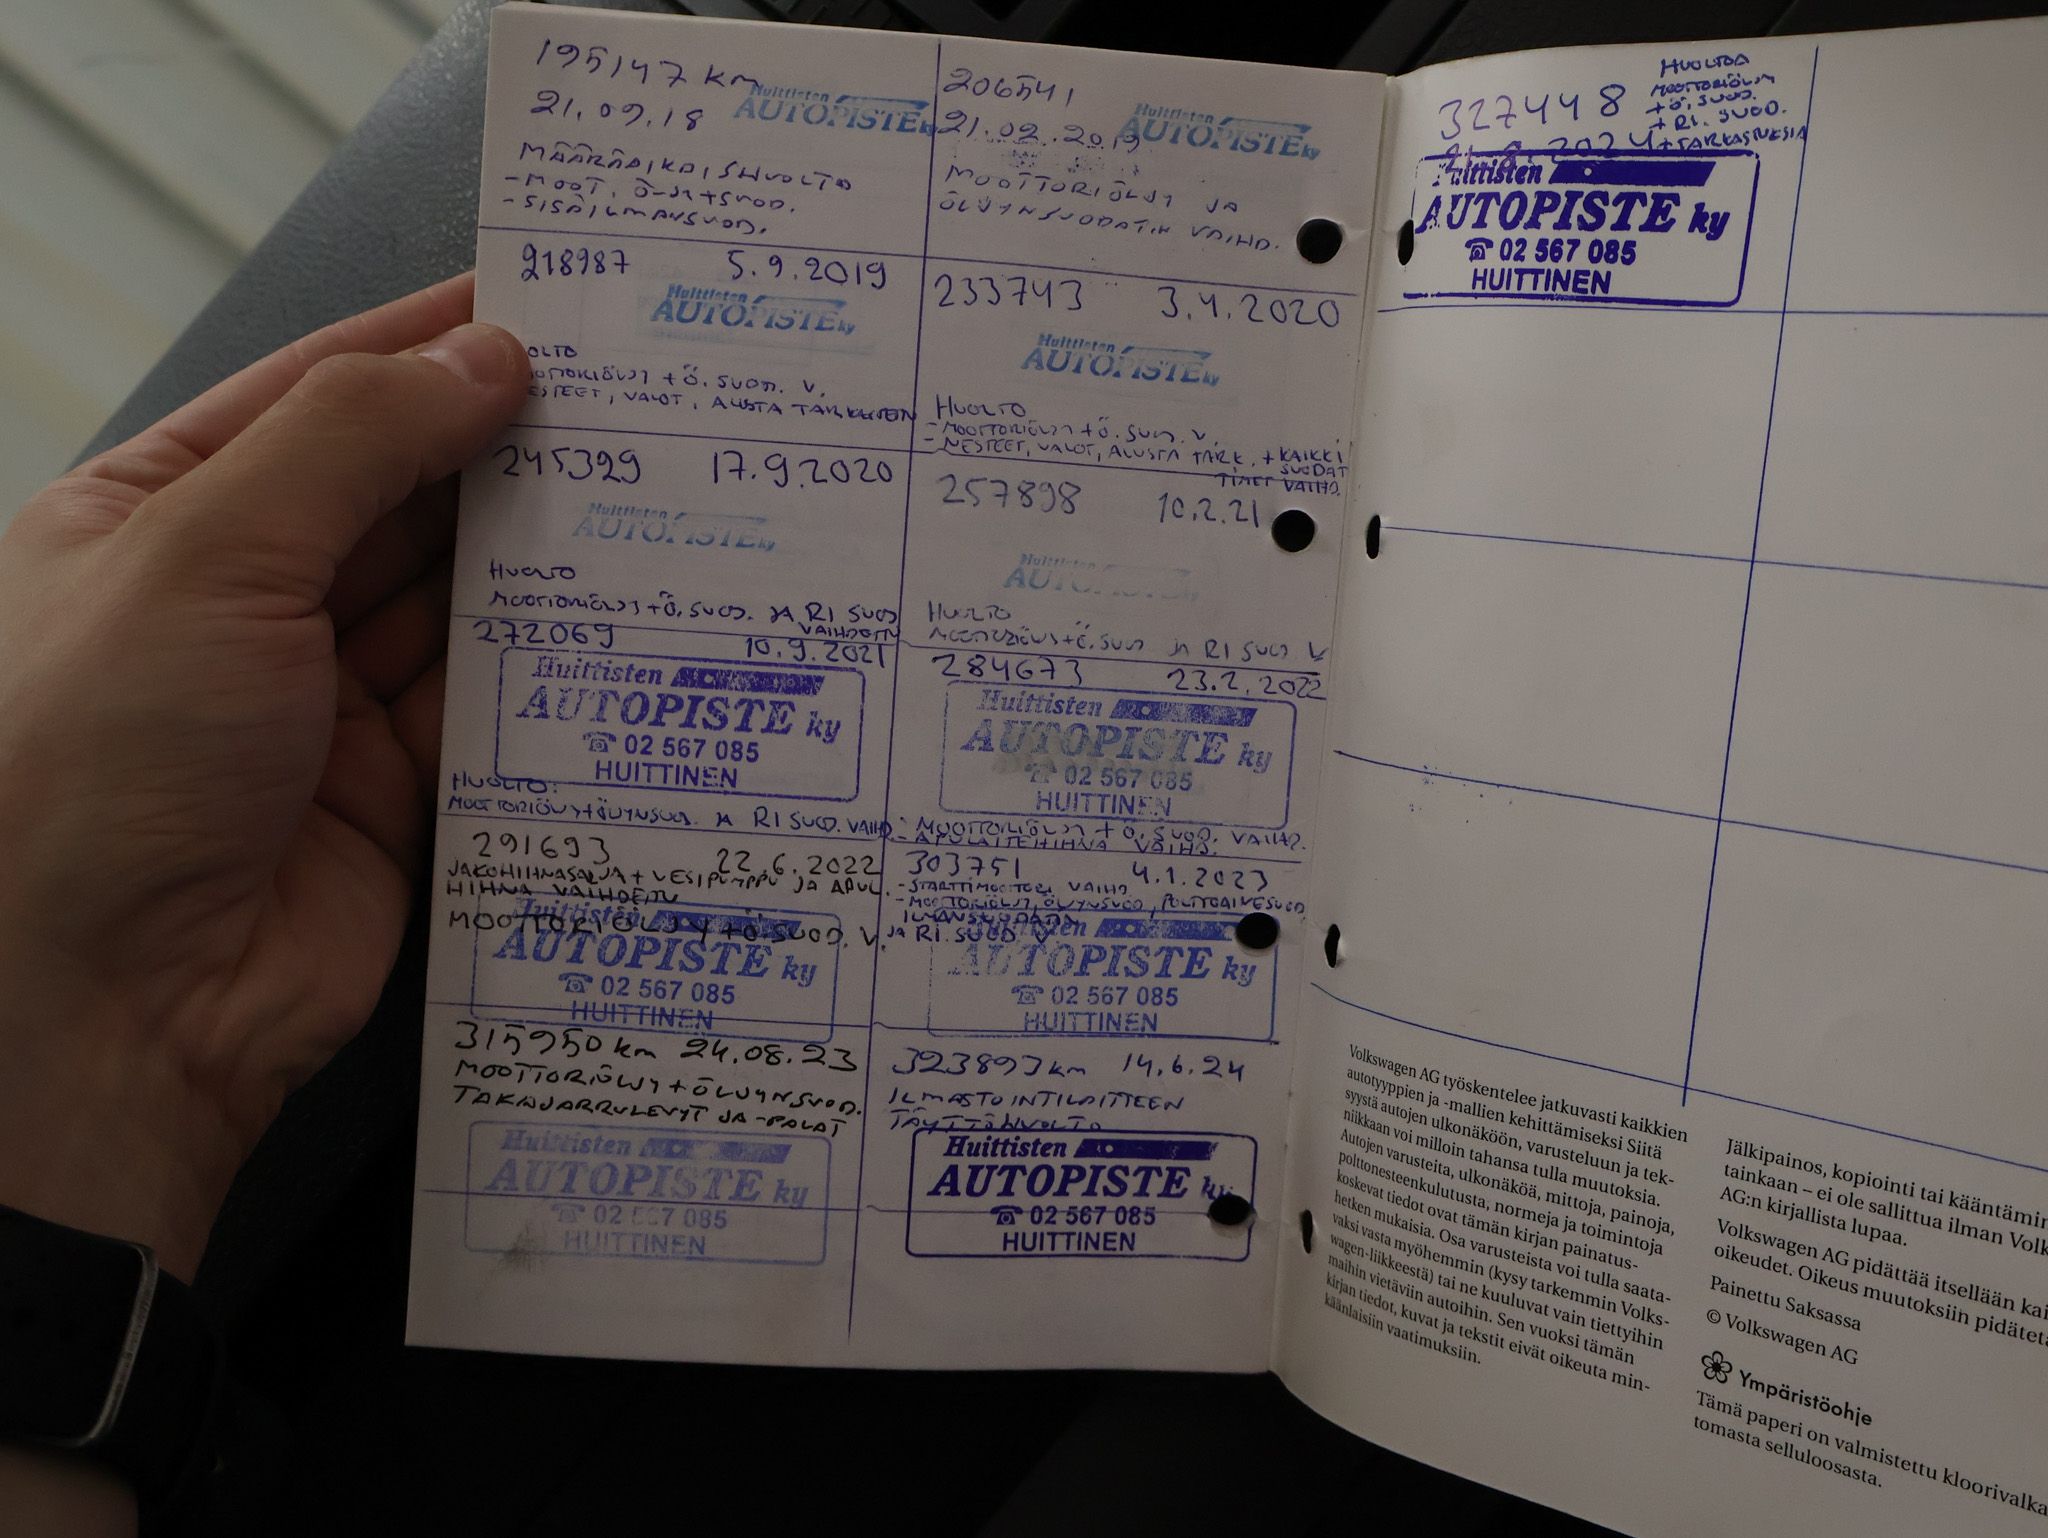 195147 km
21.09.18
Huittisten
AUTOPISTE ky
MÄÄRÄAIKAISHUOLTO
-MOOT. Ö-JY+SUOD.
-SISÄILMANSUOD.
206541
21.02.2019
Huittisten
AUTOPISTE ky
MOOTTORIÖLJY JA
ÖLJYNSUODATIN VAIHD.
218987 5.9.2019
Huittisten
AUTOPISTE ky
OLTO
MOOTTORIÖLJY + Ö. SUOD. V.
NESTEET, VALOT, ALUSTA TARKASTETTU
233743 3.4.2020
Huittisten
AUTOPISTE ky
HUOLTO
- MOOTTORIÖLJY + Ö. SUOD. V.
- NESTEET, VALOT, ALUSTA TARK. + KAIKKI
SUODAT
TIMET VAIHD.
245329 17.9.2020
Huittisten
AUTOPISTE ky
HUOLTO
MOOTTORIÖLJY + Ö. SUOD. JA RI SUOD
VAIHDETTU
257898 10.2.21
Huittisten
AUTOPISTE
HUOLTO
MOOTTORIÖLJY + Ö. SUOD JA RI SUOD V
272069 10.9.2021
Huittisten
AUTOPISTE ky
☎ 02 567 085
HUITTINEN
HUOLTO:
MOOTTORIÖLJY+ÖLJYNSUOD. JA RI SUOD. VAIHD.
284673 23.2.2022
Huittisten
AUTOPISTE ky
☎ 02 567 085
HUITTINEN
- MOOTTORIÖLJY + Ö. SUOD. VAIHD.
- APULAITEHIHNA VAIHD.
291693 22.6.2022
JAKOHIHNASARJA + VESIPUMPPU JA APUL.
HIHNA VAIHDETTU
MOOTTORIÖLJY + Ö. SUOD. V.
Huittisten
AUTOPISTE ky
☎ 02 567 085
HUITTINEN
303751 4.1.2023
- STARTTIMOOTTORI VAIHD.
- MOOTTORIÖLJY, ÖLJYNSUOD, POLTTOAINESUOD,
ILMANSUODATIN
JA RI. SUOD V
AUTOPISTE ky
☎ 02 567 085
HUITTINEN
315950 km 24.08.23
MOOTTORIÖLJY + ÖLJYNSUOD.
TAKAJARRULEVYT JA -PALAT
Huittisten
AUTOPISTE ky
☎ 02 567 085
HUITTINEN
323893 km 14.6.24
ILMASTOINTILAITTEEN
TÄYTTÖHUOLTO
Huittisten
AUTOPISTE ky
☎ 02 567 085
HUITTINEN
327448
HUOLTOA
MOOTTORIÖLJY
+ Ö. SUOD.
+ RI. SUOD.
+ TARKASTUKSIA
Huittisten
AUTOPISTE ky
☎ 02 567 085
HUITTINEN
Volkswagen AG työskentelee jatkuvasti kaikkien
autotyyppien ja -mallien kehittämiseksi Siitä
syystä autojen ulkonäköön, varusteluun ja tek-
niikkaan voi milloin tahansa tulla muutoksia.
Autojen varusteita, ulkonäköä, mittoja, painoja,
polttonesteenkulutusta, normeja ja toimintoja
koskevat tiedot ovat tämän kirjan painatus-
hetken mukaisia. Osa varusteista voi tulla saata-
vaksi vasta myöhemmin (kysy tarkemmin Volks-
wagen-liikkeestä) tai ne kuuluvat vain tiettyihin
maihin vietäviin autoihin. Sen vuoksi tämän
kirjan tiedot, kuvat ja tekstit eivät oikeuta min-
käänlaisiin vaatimuksiin.
Jälkipainos, kopiointi tai kääntämin
tainkaan – ei ole sallittua ilman Volk
AG:n kirjallista lupaa.
Volkswagen AG pidättää itsellään kai
oikeudet. Oikeus muutoksiin pidätetä
Painettu Saksassa
© Volkswagen AG
Ympäristöohje
Tämä paperi on valmistettu kloorivalka
tomasta selluloosasta.